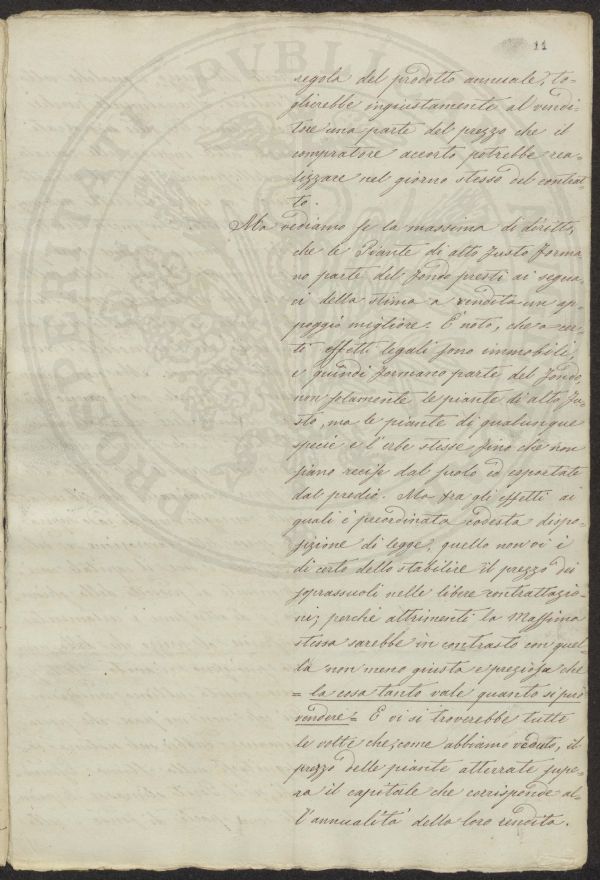 11
regola del prodotto annuale, to-
glierebbe ingiustamente al vendi-
tore una parte del prezzo che il
compratore accorto potrebbe rea-
lizzare nel giorno stesso del contrat-
to.
Ma vediamo se la massima di diritto,
che le Piante di alto fusto forma
no parte del fondo presti ai segua-
ci della stima a vendita un ap-
poggio migliore. È noto, che a cer-
ti effetti legali sono immobili,
e quindi formano parte del fondo,
non solamente le piante di alto fu-
sto, ma le piante di qualunque
specie e l'erbe stesse fino che non
siano recise dal suolo ed esportate
dal predio. Ma tra gli effetti ai
quali è preordinata codesta dispo-
sizione di legge, quello non vi è
di certo dello stabilire il prezzo dei
soprassuoli nelle libere contrattazio-
ni; perché altrimenti la Massima
stessa sarebbe in contrasto con quel-
la non meno giusta e preziosa che
= la cosa tanto vale quanto si può
vendere = E vi si troverebbe tutte
le volte che, come abbiamo veduto, il
prezzo delle piante atterrate supe-
ra il capitale che corrisponde al-
l'annualità della loro rendita.
PROSPERITATI PVBLI